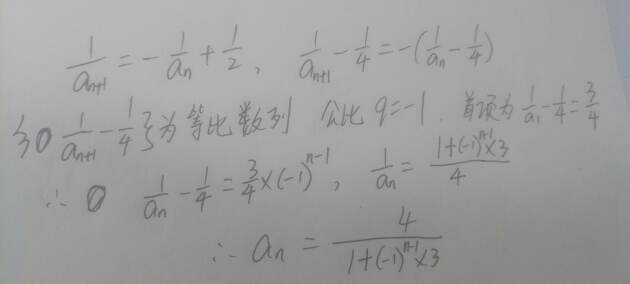 1/a_{n+1} = -1/a_n + 1/2, 1/a_{n+1} - 1/4 = -(1/a_n - 1/4)
{1/a_{n+1} - 1/4}为等比数列 公比q=-1. 首项为1/a_1 - 1/4 = 3/4
∴ 1/a_n - 1/4 = 3/4×(-1)^{n-1}, 1/a_n = (1+(-1)^{n-1}×3)/4
∴ a_n = 4/(1+(-1)^{n-1}×3)